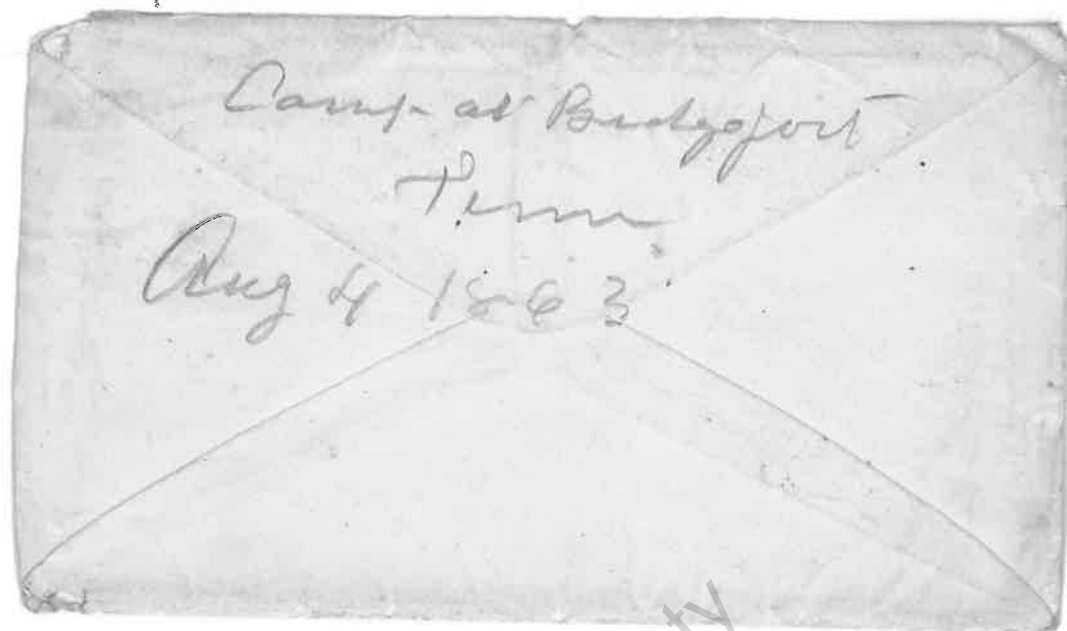 Camp at Bridgeport
Tenn
Aug 4 1863
ty